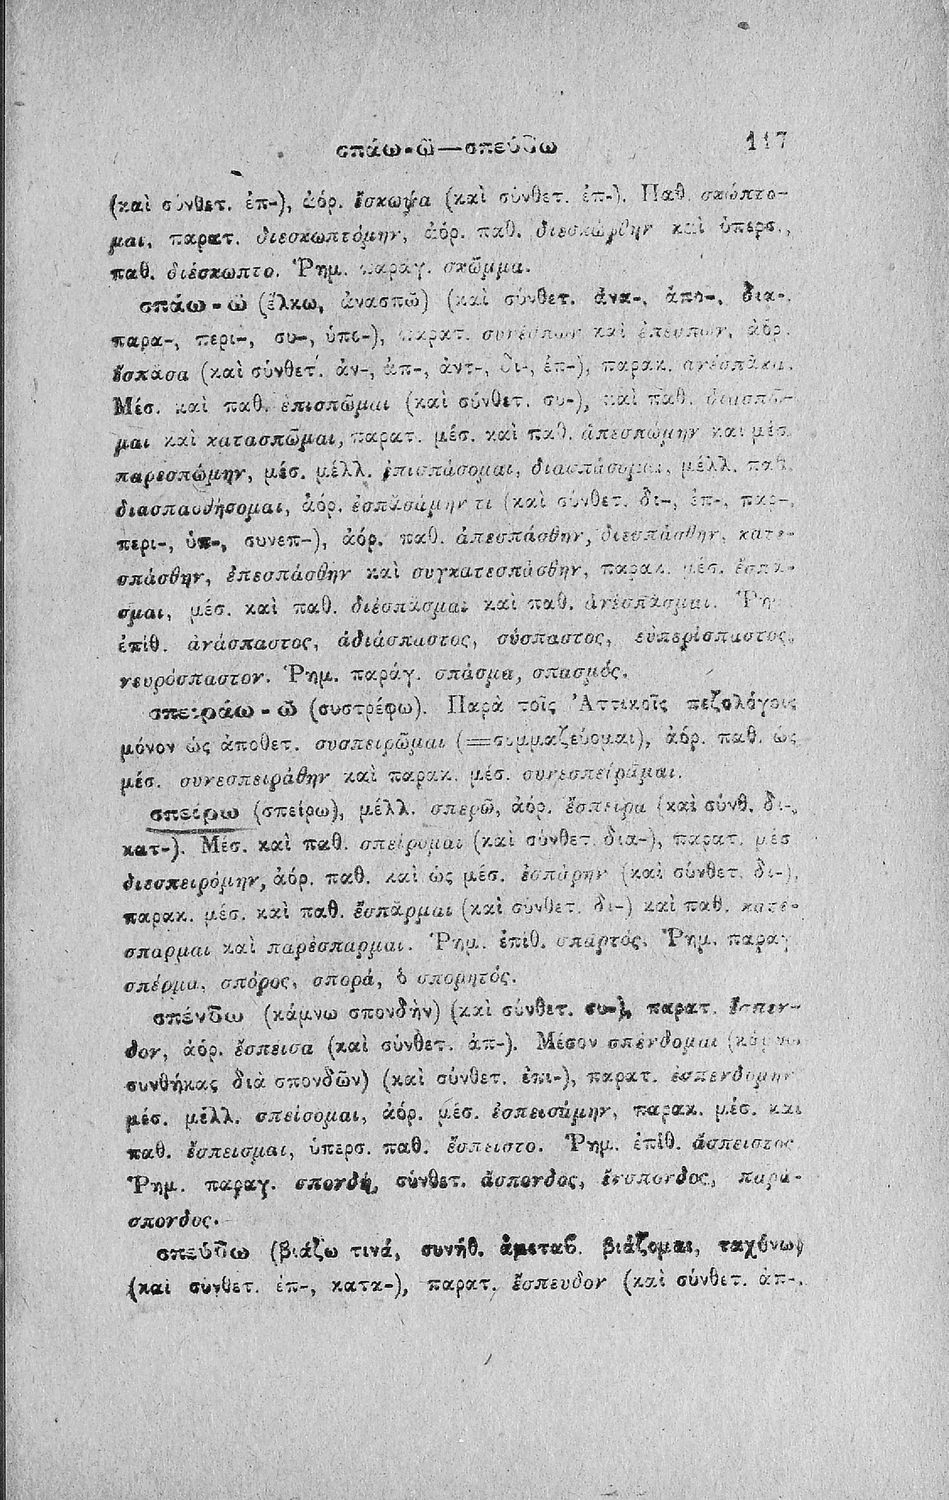 σπάω-ῶ—σπεύδω 117
(καὶ σύνθετ. ἐπ-), ἀόρ. ἔσκωψα (καὶ σύνθετ. ἐπ-). Παθ. σκώπτο-
μαι, παρατ. διεσκωπτόμην, ἀόρ. παθ. διεσκώφθην καὶ ὑπερσ.,
παθ. διέσκωπτο. Ῥημ. παράγ. σκῶμμα.
σπάω-ῶ (ἕλκω, ἀνασπῶ) (καὶ σύνθετ. ἀνα-, ἀπο-, δια-,
παρα-, περι-, συ-, ὑπο-), παρατ. συνέσπων καὶ ἐπέσπων, ἀόρ.
ἔσπᾰσα (καὶ σύνθετ. ἀν-, ἀπ-, ἀντ-, δι-, ἐπ-), παρακ. ἀνέσπᾰκα.
Μέσ. καὶ παθ. ἐπισπῶμαι (καὶ σύνθετ. συ-), καὶ παθ. διασπῶ-
μαι καὶ κατασπῶμαι, παρατ. μέσ. καὶ παθ. ἀπεσπώμην καὶ μέσ.
παρεσπώμην, μέσ. μέλλ. ἐπισπάσομαι, διασπάσομαι, μέλλ. παθ.
διασπασθήσομαι, ἀόρ. ἐσπᾰσάμην τι (καὶ σύνθετ. δι-, ἐπ-, παρ-,
περι-, ὑπ-, συνεπ-), ἀόρ. παθ. ἀπεσπάσθην, διεσπάσθην, κατε-
σπάσθην, ἐπεσπάσθην καὶ συγκατεσπάσθην, παρακ. μέσ. ἔσπα-
σμαι, μέσ. καὶ παθ. διέσπᾰσμαι καὶ παθ. ἀνέσπᾰσμαι. Ῥημ.
ἐπίθ. ἀνάσπαστος, ἀδιάσπαστος, σύσπαστος, εὐπερίσπαστος,
νευρόσπαστον. Ῥημ. παράγ. σπάσμα, σπασμός.
σπειράω-ῶ (συστρέφω). Παρὰ τοῖς Ἀττικοῖς πεζολόγοις
μόνον ὡς ἀποθετ. συσπειρῶμαι (=συμμαζεύομαι), ἀόρ. παθ. ὡς
μέσ. συνεσπειράθην καὶ παρακ. μέσ. συνεσπείρᾱμαι.
σπείρω (σπείρω), μέλλ. σπερῶ, ἀόρ. ἔσπειρα (καὶ σύνθ. δι-,
κατ-). Μέσ. καὶ παθ. σπείρομαι (καὶ σύνθετ. δια-), παρατ. μέσ
διεσπειρόμην, ἀόρ. παθ. καὶ ὡς μέσ. ἐσπάρην (καὶ σύνθετ. δι-),
παρακ. μέσ. καὶ παθ. ἔσπᾰρμαι (καὶ σύνθετ. δι-) καὶ παθ. κατέ-
σπαρμαι καὶ παρέσπαρμαι. Ῥημ. ἐπίθ. σπαρτός. Ῥημ. παραγ
σπέρμα, σπόρος, σπορά, ὁ σπορητός.
σπένδω (κάμνω σπονδὴν) (καὶ σύνθετ. συ-), παρατ. ἔσπεν-
δον, ἀόρ. ἔσπεισα (καὶ σύνθετ. ἀπ-). Μέσον σπένδομαι (κάμνω
συνθήκας διὰ σπονδῶν) (καὶ σύνθετ. ἐπι-), παρατ. ἐσπενδόμην
μέσ. μέλλ. σπείσομαι, ἀόρ. μέσ. ἐσπεισάμην, παρακ. μέσ. καὶ
παθ. ἔσπεισμαι, ὑπερσ. παθ. ἔσπειστο. Ῥημ. ἐπίθ. ἄσπειστος
Ῥημ. παραγ. σπονδή, σύνθετ. ἄσπονδος, ἔνσπονδος, παρά-
σπονδος.
σπεύδω (βιάζω τινά, συνήθ. ἀμεταβ. βιάζομαι, ταχύνω)
(καὶ σύνθετ. ἐπ-, κατα-), παρατ. ἔσπευδον (καὶ σύνθετ. ἀπ-,